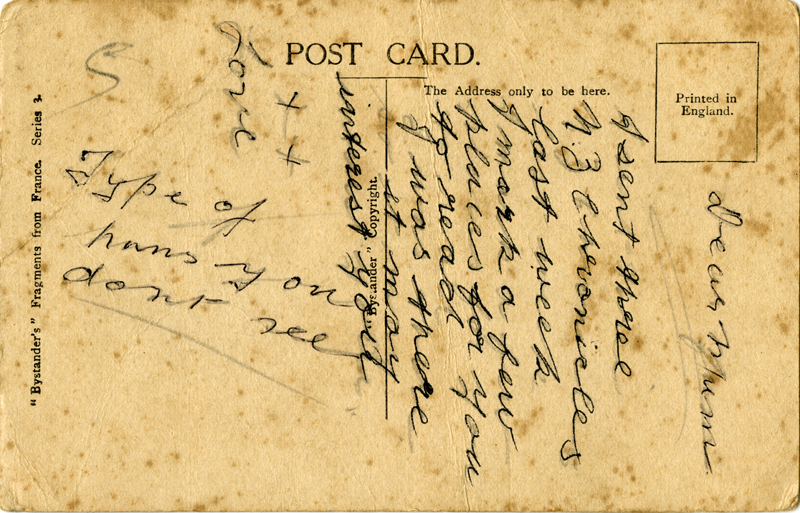 POST CARD.
The Address only to be here.
Printed in
England.
"Bystander" Copyright.
"Bystander's" Fragments from France. Series 3.
Dear Mum
I sent three
N.Z Chronicles
last week
I mark a few
places for you
to read
I was there
it may
interest you
Love
+ + +
Type of
huns you
dont see